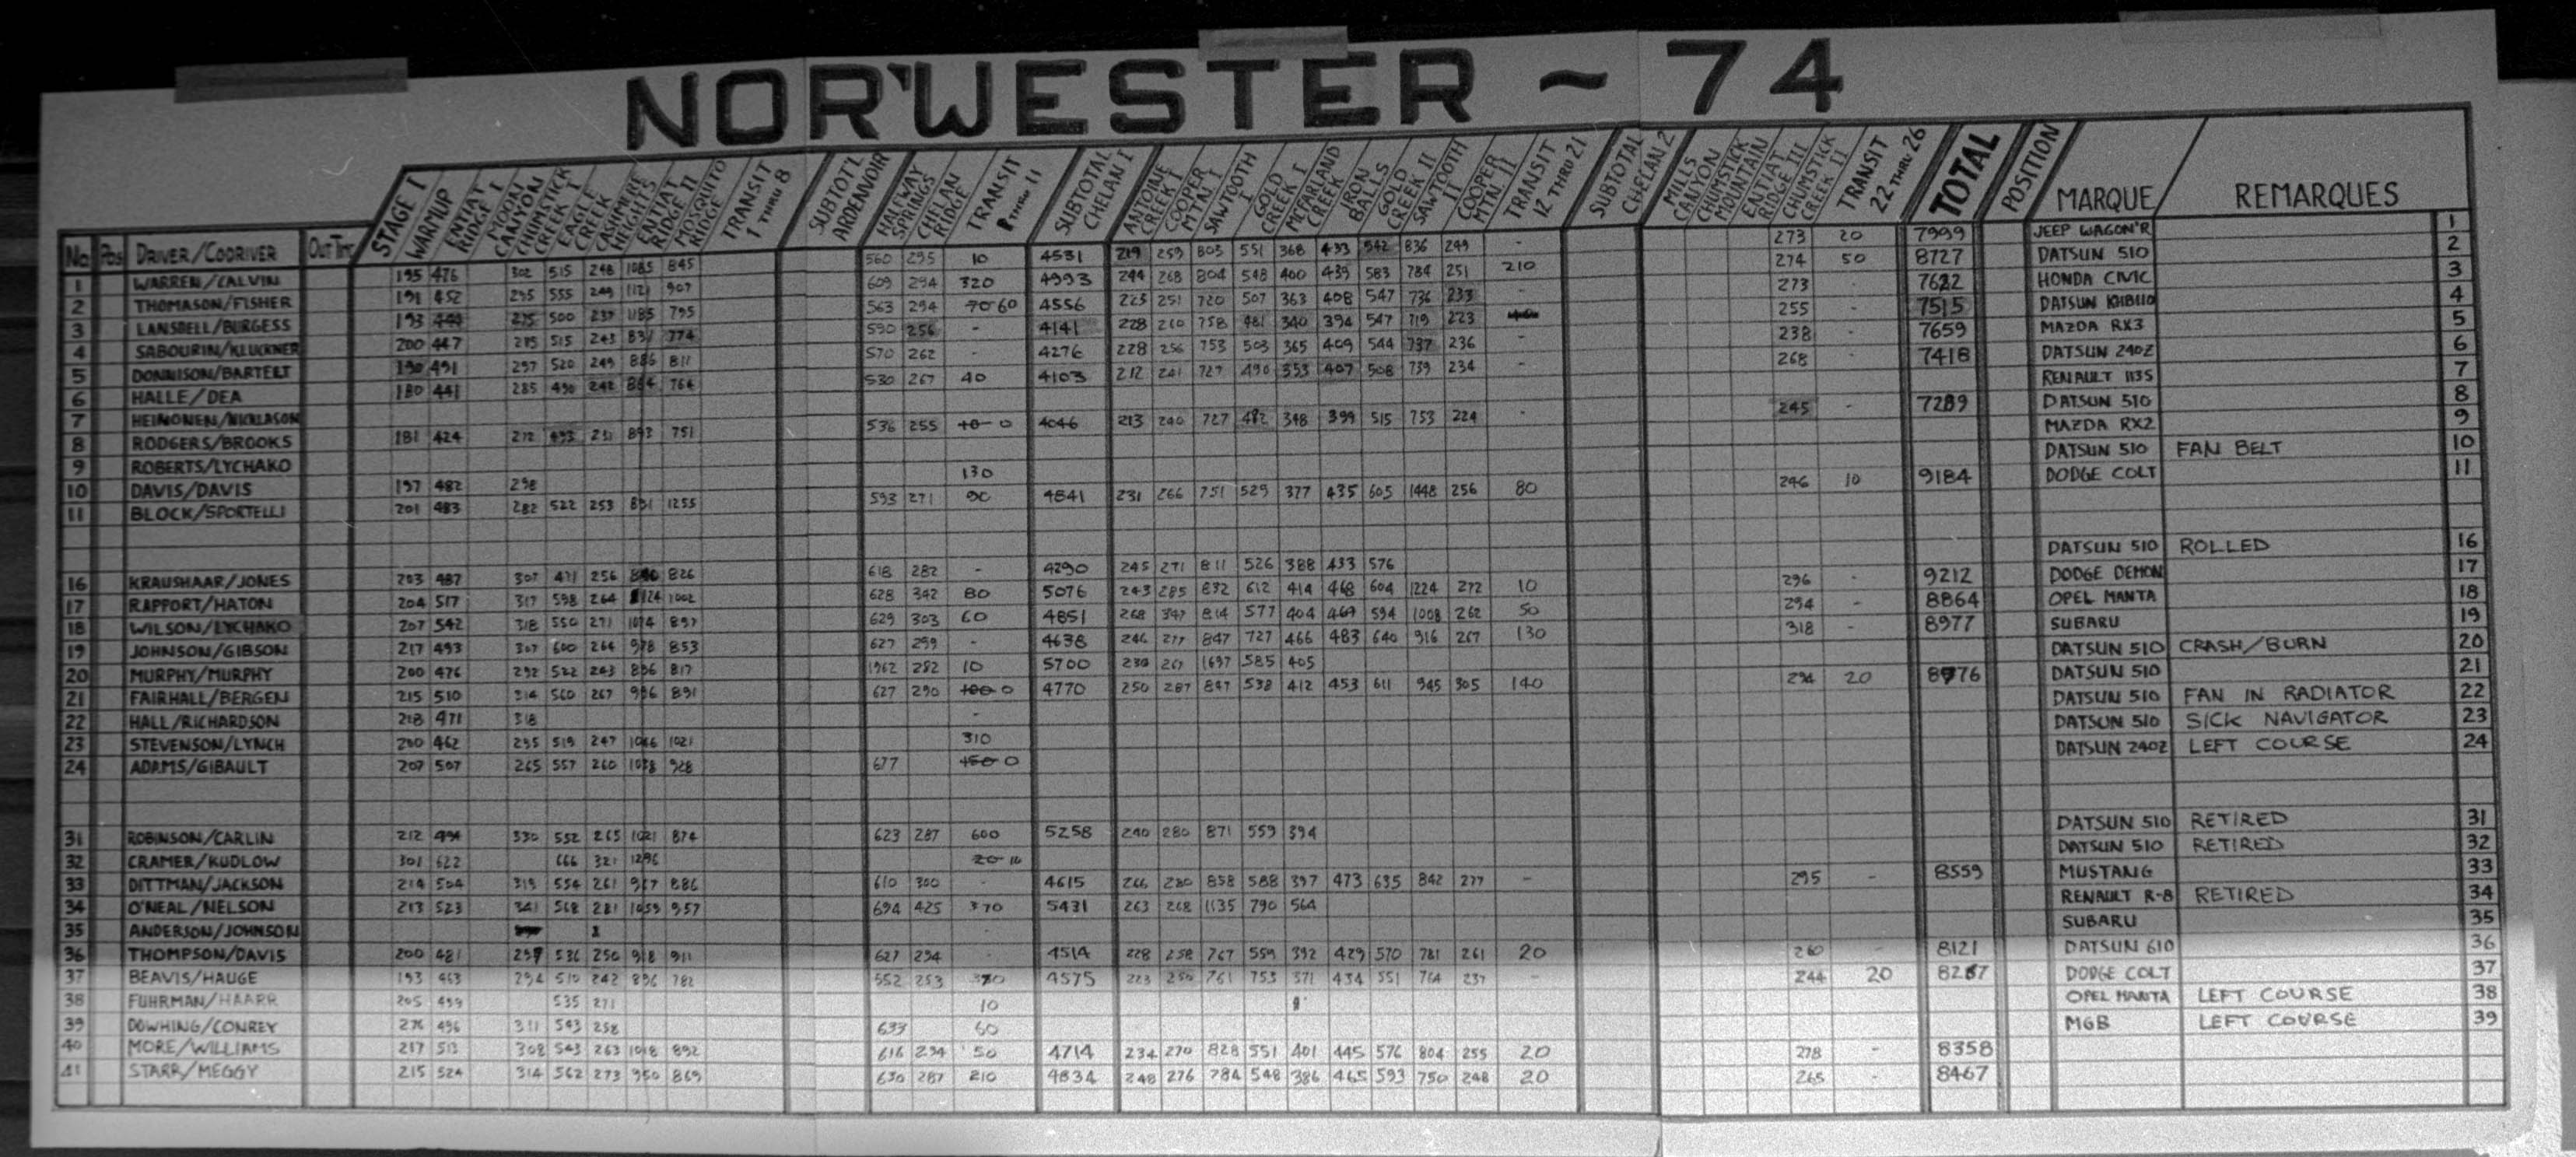 NOR'WESTER ~ 74
No Pos DRIVER/CODRIVER Out Time STAGE I WARMUP ENTIAT RIDGE I MOON CANYON CHUMSTICK CREEK I EAGLE CREEK CASHMERE HEIGHTS ENTIAT RIDGE II MOSQUITO RIDGE TRANSIT 1 THRU 8 SUBTOT'L ARDENVOIR HALFWAY SPRINGS CHELAN RIDGE TRANSIT THRU 11 SUBTOTAL CHELAN I ANTOINE CREEK I COOPER MTN I SAWTOOTH I GOLD CREEK I MCFARLAND CREEK IRON BALLS GOLD CREEK II SAWTOOTH II COOPER MTN. II TRANSIT 12 THRU 21 SUBTOTAL CHELAN 2 MILLS CANYON CHUMSTICK MOUNTAIN ENTIAT RIDGE III CHUMSTICK CREEK II TRANSIT 22 THRU 26 TOTAL POSITION MARQUE REMARQUES
1 WARREN/CALVIN 195 476 302 515 248 1085 845 560 295 10 4531 219 259 803 551 368 433 542 836 249 - 273 20 7999 JEEP WAGON'R 1
2 THOMASON/FISHER 191 452 295 555 249 1121 907 609 294 320 4993 244 268 804 548 400 439 583 784 251 210 274 50 8727 DATSUN 510 2
3 LANSBELL/BURGESS 193 444 275 500 237 1185 795 563 294 70 60 4556 223 251 720 507 363 408 547 736 233 - 273 - 7622 HONDA CIVIC 3
4 SABOURIN/KLUCKNER 200 447 285 515 243 831 774 590 256 - 4141 228 260 758 481 340 394 547 719 223 255 - 7515 DATSUN KHB110 4
5 DONNISON/BARTELT 190 491 297 520 249 886 811 570 262 - 4276 228 256 753 503 365 409 544 737 236 - 238 - 7659 MAZDA RX3 5
6 HALLE/DEA 180 441 285 490 242 864 764 530 267 40 4103 212 241 727 490 353 407 508 739 234 - 268 - 7418 DATSUN 240Z 6
7 HEINONEN/NICKLASON RENAULT 1135 7
8 RODGERS/BROOKS 181 424 272 493 231 893 751 536 255 10 0 4046 213 240 727 482 348 399 515 753 224 - 245 - 7289 DATSUN 510 8
9 ROBERTS/LYCHAKO MAZDA RX2 9
10 DAVIS/DAVIS 197 482 298 130 DATSUN 510 FAN BELT 10
11 BLOCK/SPORTELLI 201 483 282 522 253 831 1255 593 271 90 4841 231 266 751 529 377 435 605 1448 256 80 246 10 9184 DODGE COLT 11
16 KRAUSHAAR/JONES 203 487 307 471 256 826 618 282 - 4290 245 271 811 526 388 433 576 DATSUN 510 ROLLED 16
17 RAPPORT/HATON 204 517 317 598 264 1124 1002 628 342 80 5076 243 285 832 612 414 468 604 1224 272 10 296 - 9212 DODGE DEMON 17
18 WILSON/LYCHAKO 207 542 318 550 271 1074 897 629 303 60 4851 268 347 814 577 404 469 594 1008 262 50 294 - 8864 OPEL MANTA 18
19 JOHNSON/GIBSON 217 493 307 600 264 978 853 627 299 - 4638 246 277 847 727 466 483 640 916 267 130 318 - 8977 SUBARU 19
20 MURPHY/MURPHY 200 476 292 522 243 896 817 1962 282 10 5700 230 267 1697 585 405 DATSUN 510 CRASH/BURN 20
21 FAIRHALL/BERGEN 215 510 314 560 267 996 891 627 290 100 0 4770 250 287 847 538 412 453 611 945 305 140 294 20 8976 DATSUN 510 21
22 HALL/RICHARDSON 218 471 318 - DATSUN 510 FAN IN RADIATOR 22
23 STEVENSON/LYNCH 200 462 295 519 247 1046 1021 310 DATSUN 510 SICK NAVIGATOR 23
24 ADAMS/GIBAULT 207 507 265 557 260 1038 928 677 150 0 DATSUN 240Z LEFT COURSE 24
31 ROBINSON/CARLIN 212 494 330 552 265 1021 874 623 287 600 5258 240 280 871 559 394 DATSUN 510 RETIRED 31
32 CRAMER/KUDLOW 301 622 666 321 1296 20 10 DATSUN 510 RETIRED 32
33 DITTMAN/JACKSON 214 504 319 554 261 967 886 610 300 - 4615 266 280 858 588 397 473 635 842 277 - 295 - 8559 MUSTANG 33
34 O'NEAL/NELSON 213 523 341 568 281 1059 957 694 425 370 5431 263 268 1135 790 564 RENAULT R-8 RETIRED 34
35 ANDERSON/JOHNSON SUBARU 35
36 THOMPSON/DAVIS 200 481 297 536 250 918 911 627 294 - 4514 228 258 767 559 392 429 570 781 261 20 260 - 8121 DATSUN 610 36
37 BEAVIS/HAUGE 193 463 294 510 242 896 782 552 253 4575 223 250 761 753 371 434 551 764 237 - 244 20 8287 DODGE COLT 37
38 FUHRMAN/HAARR 205 499 535 271 10 OPEL MANTA LEFT COURSE 38
39 DOWHING/CONREY 276 496 311 543 258 633 60 MGB LEFT COURSE 39
40 MORE/WILLIAMS 217 513 308 543 263 1018 892 616 294 50 4714 234 270 828 551 401 445 576 804 255 20 278 - 8358
41 STARR/MEGGY 215 524 314 562 273 950 869 630 287 210 4834 248 276 784 548 386 465 593 750 248 20 265 - 8467